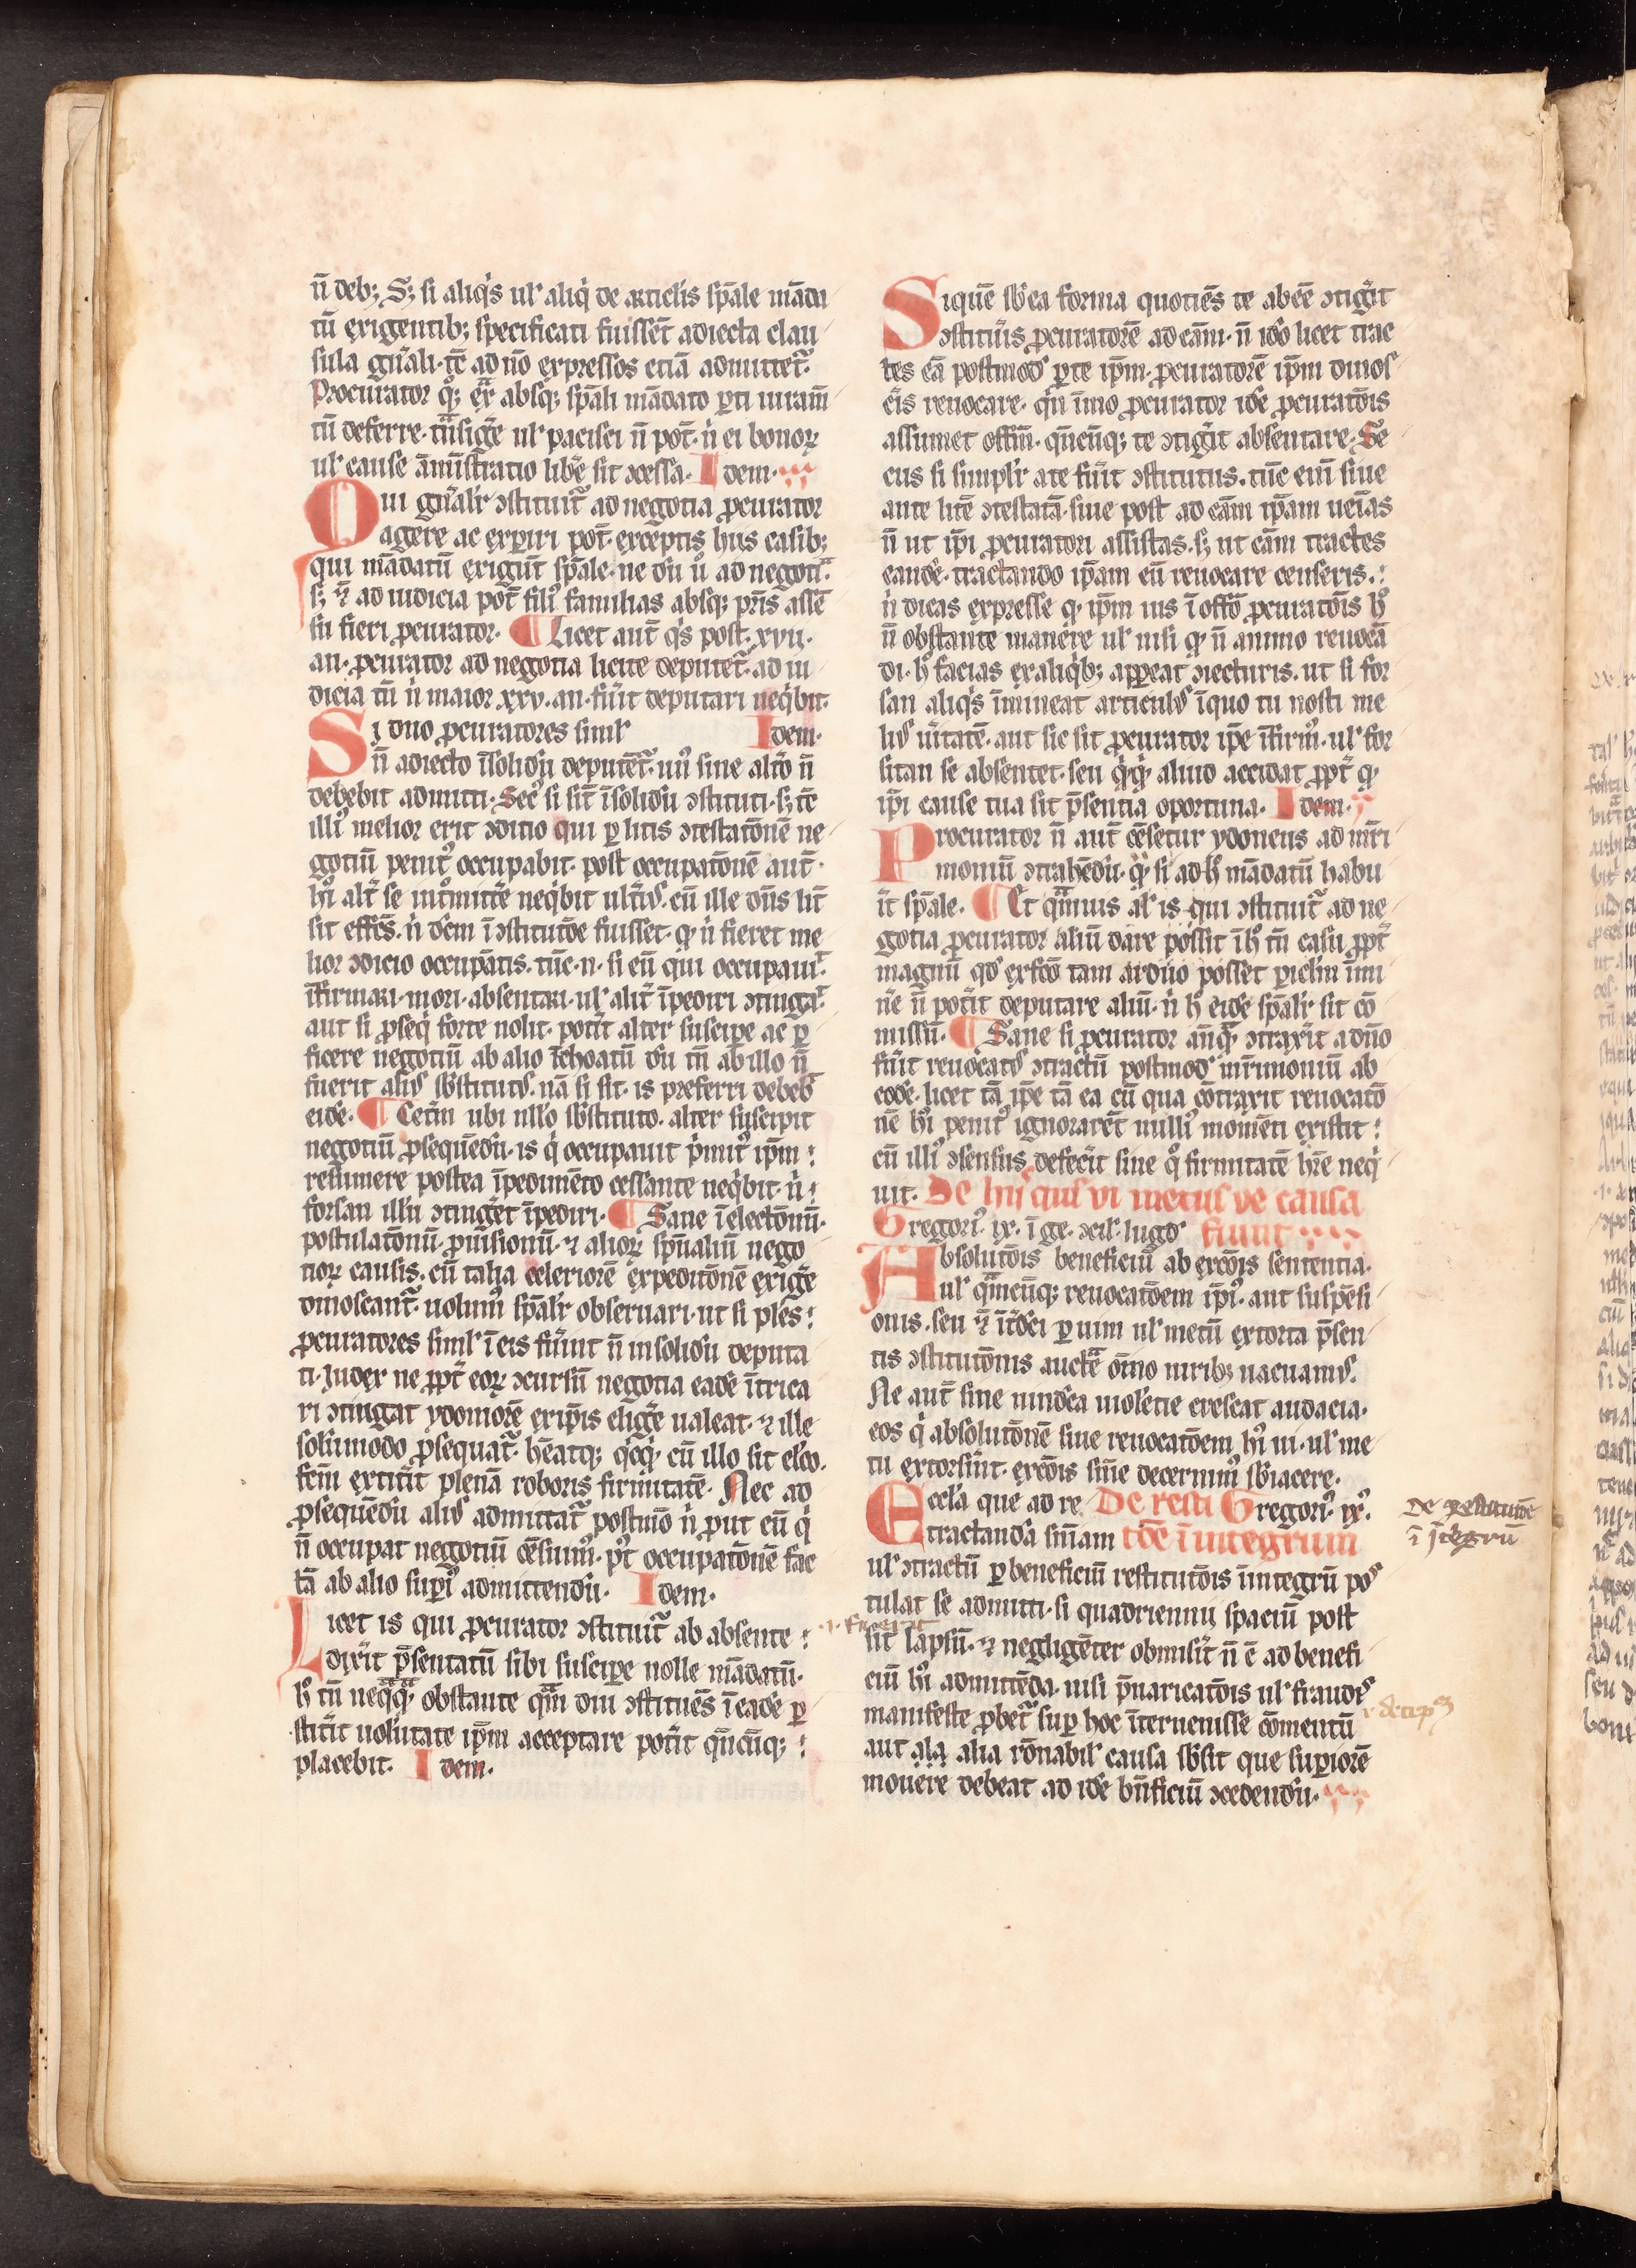 n̄ deb; S; si aliq̇s ul' aliq̇ de articl'is sp̄ale mādа
tū exigentib; specificati fuissēt adiecta clau
sula gn̄ali· tc̄ ad nō expressos etiā admittet᷑.
Procurator qͦ; ex̄ absq; sp̄ali mādato ꝑti iuram̄
tū deferre· tn̄siḡe ul' pacisci n̄ pot̄· n̍ ei bonoꝝ
ul' cause āmīstratio lib̄e sit ꝯcessa· Idem·
Qui gn̄alr̄ ꝯstituit᷑ ad negotia ꝓcurator
agere ac exꝑiri pot̄· exceptis hus casib;
qui mādatū exigūt sp̄ale· ne dū ū ad negotia·
s; ⁊ ad iudicia pot̄ fili᷒ familias absq; pr̄is assē
su fieri ꝓcurator· ¶ Licet aut̄ q̇s post· xvii·
an· ꝓcurator ad negotia licite deputet᷑· ad iu
dicia tn̄ n̍ maior xxv· an· fu̍it deputari neq̇bit·
Si duo ꝓcuratores simul' Idem·
n̄ adiecto īsolidū deputēt᷑· un᷒ sine alt̍o n̄
debebit admitti· Sec᷒ si sīt īsolidū ꝯstituti· s; tc̄
illi᷒ melior erit ꝯditio qui ꝑ litis ꝯtestatōnē ne
gotiū penit᷒ occupabit· post occupatōnē aut̄·
hi᷒ alt̍ se int̍mitt̍e neq̇bit ult̍i᷒· cū ille dn̄s lit̄
sit effc̄s· n̍ dc̄m ī ꝯstitutōe fuisset· ꝙ n̍ fieret me
lior ꝯdicio occupātis· tūc· n· si eū qui occupauit·
īfirmari· mori· absentari· ul' alit̍ īpediri ꝯtingat·
aut si ꝓseq̇ forte nolit· pot̍it alter suscipe ac ꝑ
ficere negotiū ab alio īchoatū dū tn̄ ab illo n̄
fuerit ali᷒ sb̄stitut᷒· nā si sit· is preferri debeb̍
eidē· ¶ Cet̍m ubi nllo sb̄stituto· alter suscipit
negotiū ꝓsequēdū· is q̇ occupauit p̍mit᷒ ip̄m
resumere postea īpedimēto cessante neq̇bit· n̍
forsan illū ꝯtinget īpediri· ¶ Sane ī electōnū·
postulatōnū· ꝓuisionū· ⁊ alioꝝ sp̄ualiū nego
tioꝝ causis· cū talia celeriorē expeditōnē exig̍e
dinoscant᷑· uolum᷒ sp̄alr̄ obseruari· ut si ples̄
ꝓcuratores simul' ī eis fu̍int n̄ insolidū deputa
ti· Iudex ne ꝓpt̍ eoꝝ ꝯcursū negotia eadē ītrica
ri ꝯtingat ydoniorē exip̄is elig̍e ualeat· ⁊ ille
solūmodo ꝓsequat᷑· hēatq; qcq̇· cū illo sit el'co·
fcm̄ extit̍it plenā roboris firmitatē· Nec ad
ꝓsequēdū ali᷒ admittat᷑ postmō n̍ ꝓut eū q̇
n̄ occupat negotiū cēsuim᷒· pt̍ occupatōnē fac
tā ab alio suꝑi᷒ admittendū· Idem·
Licet is qui ꝓcurator ꝯstituit᷑ ab absente
dix̍it p̄sentatū sibi suscipe nolle mādatū·
hͦ tn̄ neq̄q̄· obstante qm̄ diu ꝯstituēs ī eadē ꝑ
stit̍it uolūtate ip̄m acceptare pot̍it qn̄cūq;
placebit· Idem·
Siquē sb̄ea forma quotiēs te abeē ꝯtig̍it
ꝯstitu̍is ꝓcuratorē ad cām· n̄ idō licet trac
tes eā postmod᷒ ꝑte ip̄m· ꝓcuratorē ip̄m dinos
c̍is reuocare· qn̄ īmo ꝓcurator idē ꝓcuratōis
assumet offm̄· qn̄cūq; te ꝯtig̍it absentare· Se
cus si simpl'r ate fu̍it ꝯstitutus· tūc eni̅ siue
ante litē ꝯtestatā· siue post ad cām ip̄am ueīas
n̄ ut ip̄i ꝓcuratori assistas· s; ut cām tractes
eandē· tractando ip̄am eū reuocare censeris·
n̍ dicas expresse ꝙ ip̄m uis ī offō ꝓcuratōis hͦ
n̄ obstante manere ul' nisi ꝙ n̄ animo reuocā
di· hͦ facias exaliq̇b; appeat ꝯiecturis· ut si for
san aliq̇s īmineat articul᷒ īquo tu nosti me
li᷒ u̍itatē· aut sic sit ꝓcurator ip̄e īfirm᷒· ul' for
sitan se absentet· seu q̇q̇· aliud accidat ꝓpt̍ ꝙ
ip̄i cause tua sit p̄sentia oportuna· Idem·
Procurator n̄ aut̄ cēsetur ydoneus ad mr̄i
moniū ꝯtrahēdū· ꝙ̍ si ad hͦ mādatū habu
it̍ sp̄ale· ¶ Et qm̄uis al' is qui ꝯstituit᷑ ad ne
gotia ꝓcurator aliū dare possit ī hͦ tn̄ casu ꝓpt̍
magnū qd᷒ exfcō tam arduo posset ꝑiclm̄ īmi
n̍e n̄ pot̍it deputare aliū· n̍ hͦ eidē sp̄alr̄ sit cō
missū· ¶ Sane si ꝓcurator an̄q̄ ꝯtrax̍it adn̄o
fu̍it reuocat᷒ ꝯtractū postmod᷒ mr̄imoniū ab
eodē· licet tā ip̄e tā ea cū qua cōtraxit reuocatō
nē hi᷒ penit᷒ ignorarēt nulli᷒ momēti existit
cū illi᷒ ꝯsensus defec̍it sine qͦ firmitatē hr̄e neq̇
uit· De hiis que ui metus ue causa
Gregori᷒ ix· ī ge· ꝯcil' lugd᷒ fiunt
Absolutōis beneficiū ab excōis sententia·
ul' qm̄cūq; reuocatōem ip̄i᷒· aut suspēsi
onis· seu ⁊ īt̍dci ꝑ uim ul' metū extorta p̄sen
tis ꝯstitutōnis auctē oīno uirib; uacuam᷒·
Ne aut̄ sine uindca uiolētie crescat audacia·
eos q̇ absolutōnē siue reuocatōem hi᷒ ui· ul' me
tu extorsi̍nt· excōis sn̄ie decernim᷒ sb̄iacere·
Eccl'a que ad re De resti Gregori᷒ ix᷒·
tractandā sn̄iam tōe īintegrum
ul' ꝯtractū ꝑ beneficiū restitutōis īintegrū pos
tulat se admitti· si quadriennij spaciū post
sit lapsū· ⁊ negligēter obmisit̍ n̄ ē ad benefi
ciū hi᷒ admittēda· nisi p̄uaricatōis ul' fraud᷒
manifeste ꝓbet᷑ suꝑ hoc īteruenisse cōmentū
aut ala alia rōnabil' causa sb̄sit que suꝑiorē
mouere debeat ad idē bn̄ficiū ꝯcedendū·
de restitutōe
ī ītegrū